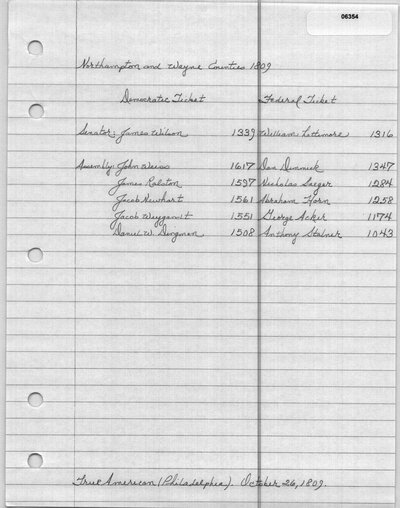 06354
Northampton and Wayne Counties 1809
Democratic Ticket Federal Ticket
Senator: James Wilson 1339 William Lattimore 1316
Assembly: John Weiss 1617 Dan Dimmick 1347
James Ralston 1597 Nicholas Saeger 1284
Jacob Newhart 1561 Abraham Horn 1258
Jacob Weygandt 1551 George Acker 1174
Daniel W. Dingman 1508 Anthony 1043
True American (Philadelphia). October 26, 1809.